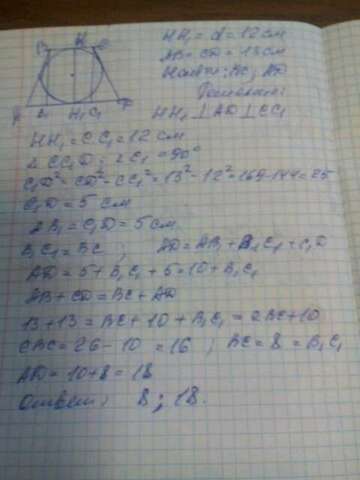 B H C
A B₁ H₁ C₁ D
HH₁ = d = 12 см
AB = CD = 13 см
Найти: BC; AD
Решение:
HH₁ ⊥ AD ⊥ CC₁
HH₁ = CC₁ = 12 см
∠ CC₁D; ∠C₁ = 90°
C₁D² = CD² - CC₁² = 13² - 12² = 169 - 144 = 25
C₁D = 5 см
AB₁ = C₁D = 5 см
B₁C₁ = BC ; AD = AB₁ + B₁C₁ + C₁D
AD = 5 + B₁C₁ + 5 = 10 + B₁C₁
AB + CD = BC + AD
13 + 13 = BC + 10 + B₁C₁ = 2BC + 10
2BC = 26 - 10 = 16 ; BC = 8 = B₁C₁
AD = 10 + 8 = 18
Ответ: 8 ; 18.